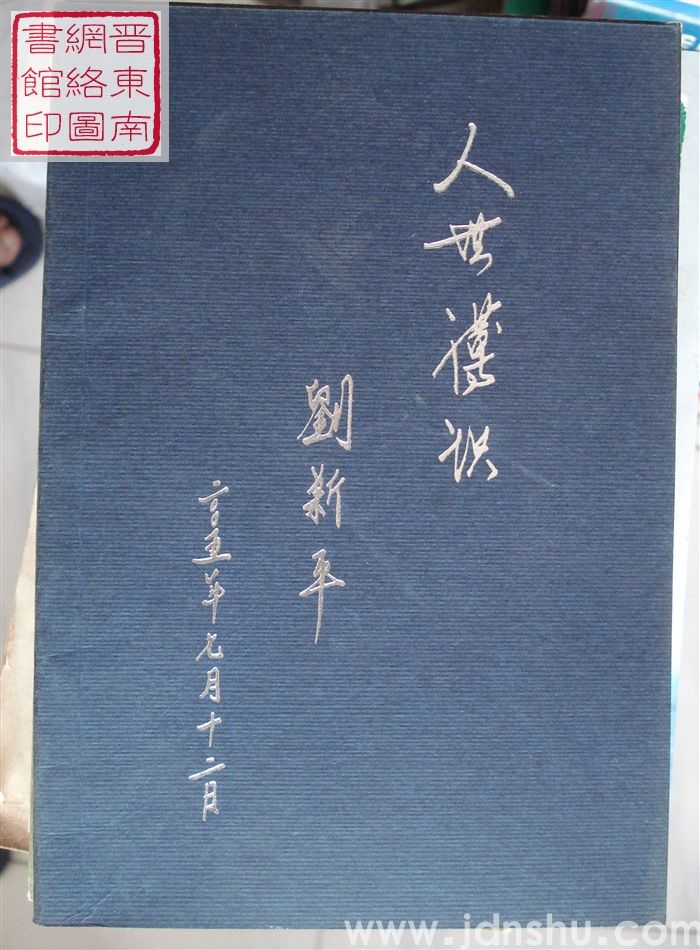 晋東南
網絡圖
書館印
人世识
劉新平
二〇〇五年七月十二日
www.jdnshu.com